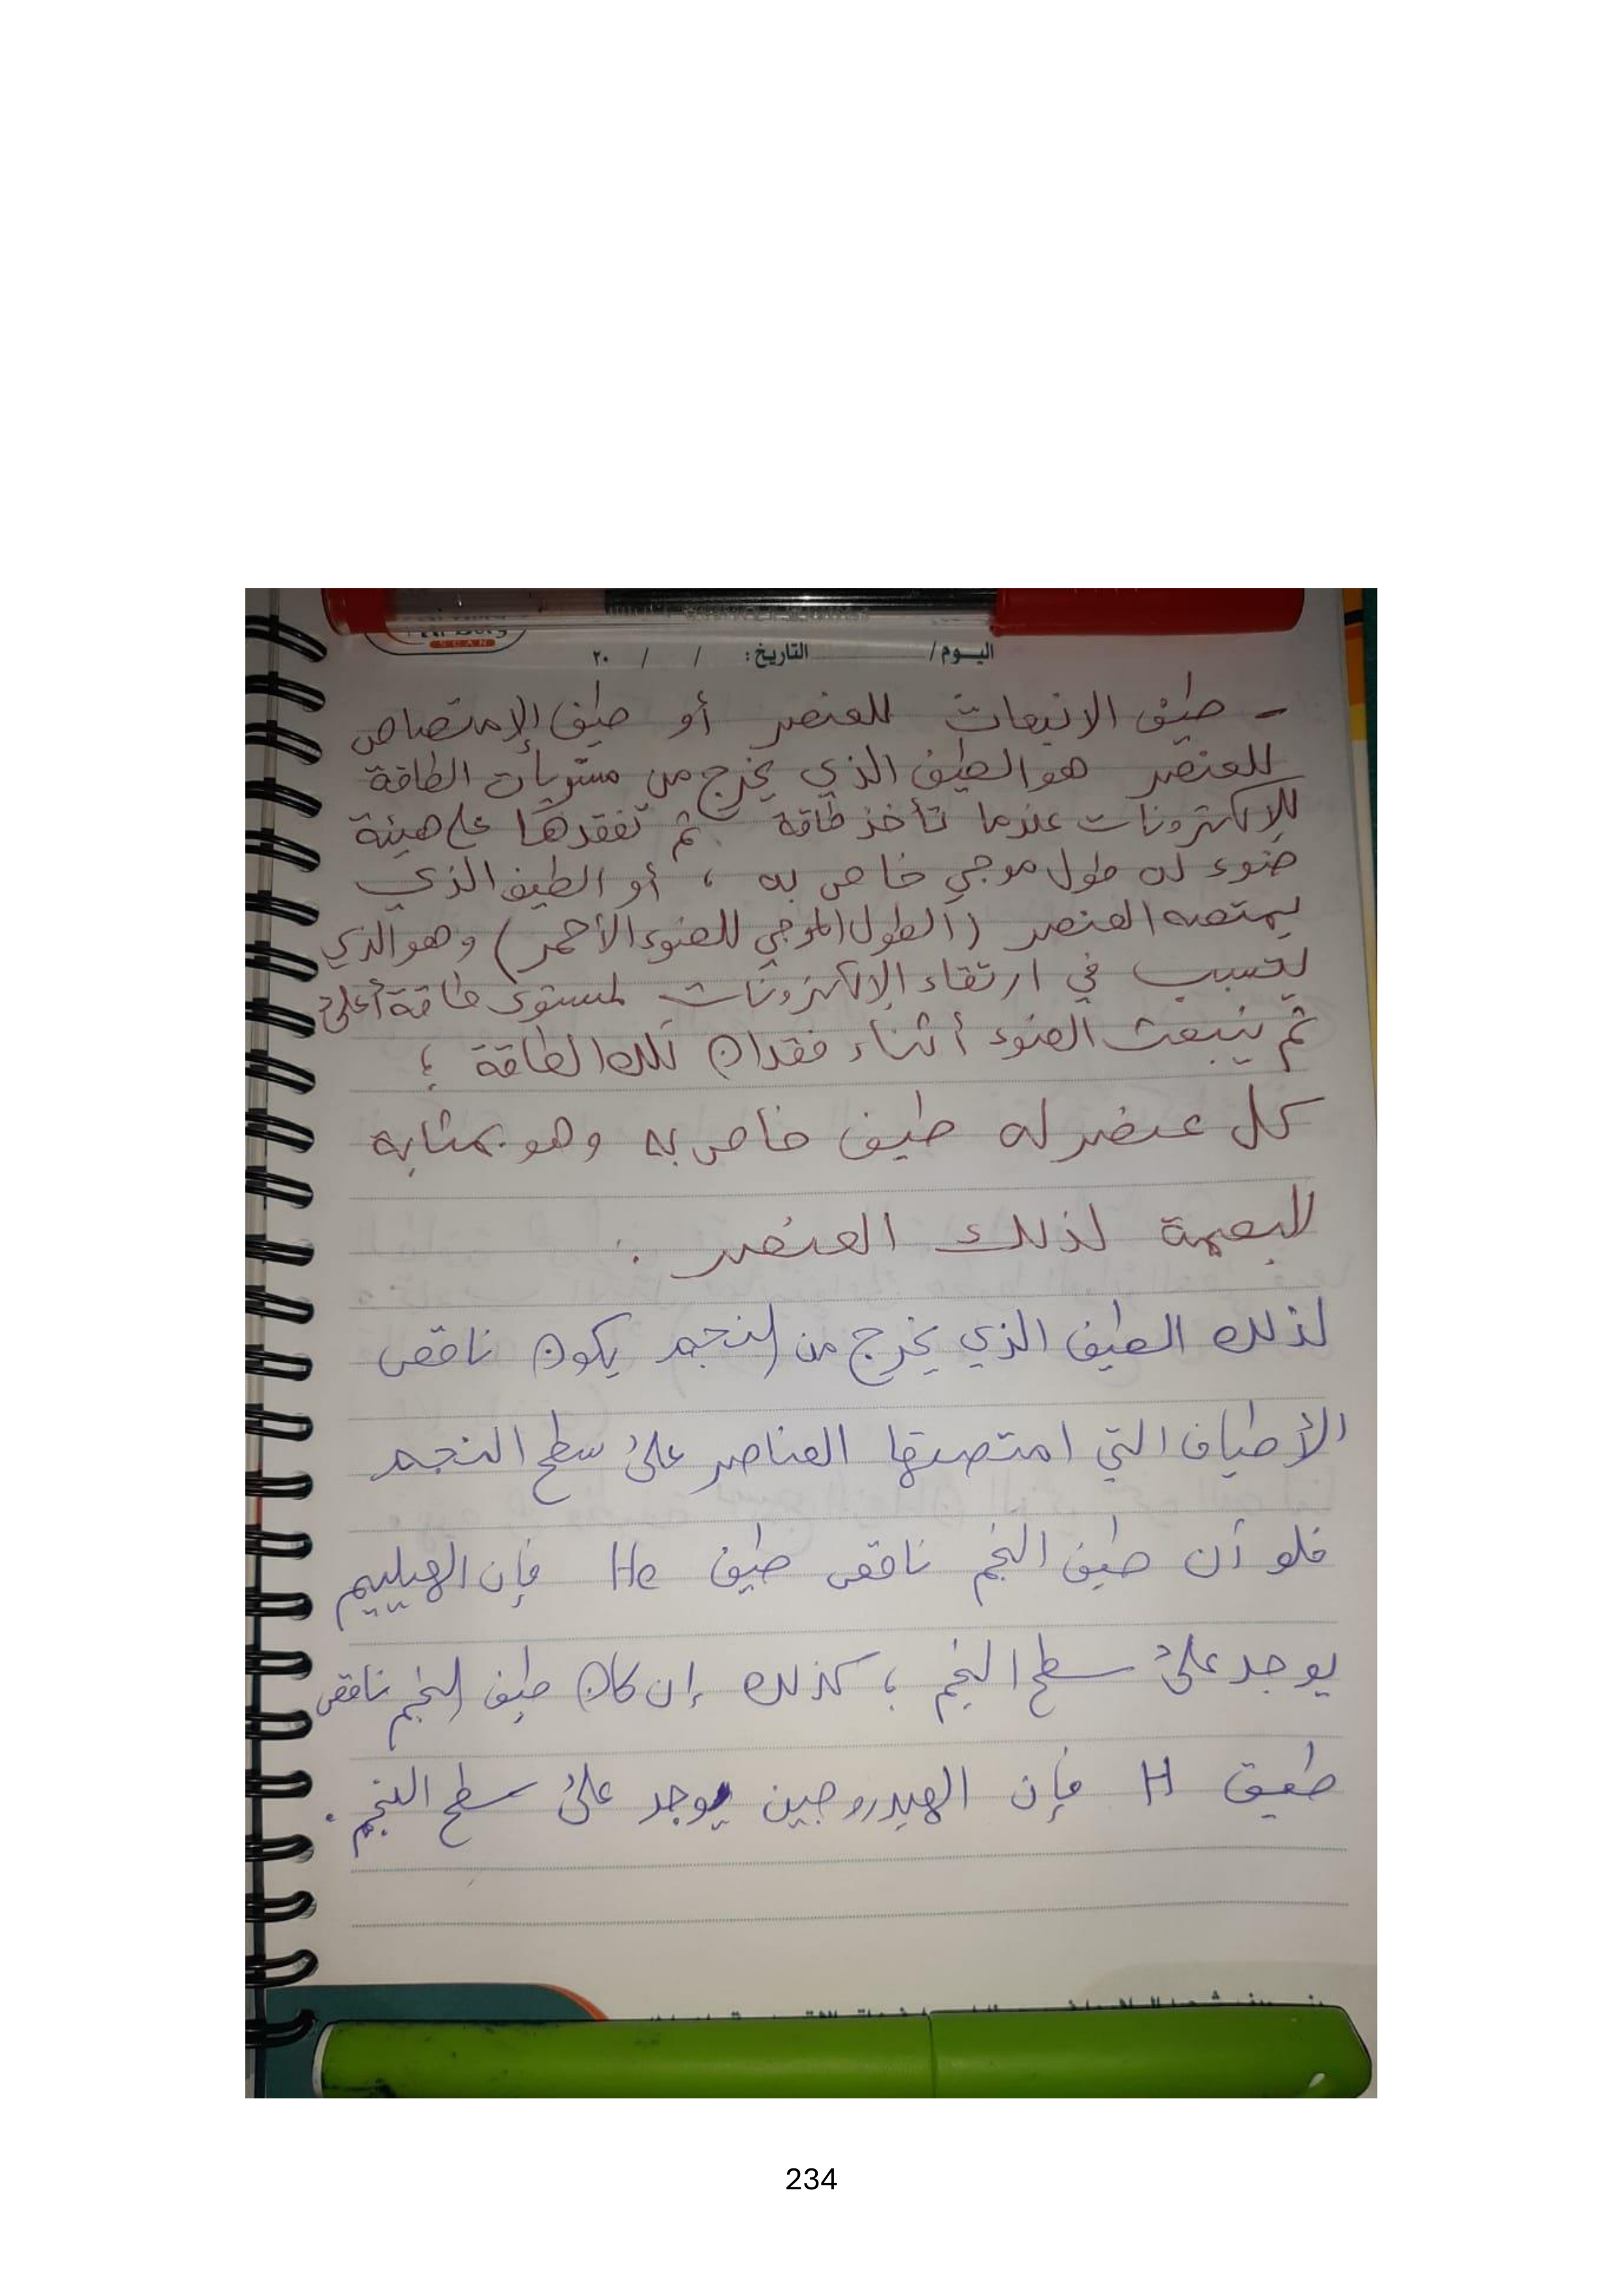 اليوم/ التاريخ: / / ٢٠
SCAN
- طيف الانبعاث للعنصر أو طيف الإمتصاص
للعنصر هو الطيف الذي يخرج من مستويات الطاقة
للإلكترونات عندما تأخذ طاقة ثم تفقدها على هيئة
ضوء له طول موجي خاص به ، أو الطيف الذي
يمتصه العنصر (الطول الموجي للضوء الأحمر) وهو الذي
يتسبب في ارتقاء الإلكترونات لمستوى طاقة أعلى
ثم ينبعث الضوء أثناء فقدان تلك الطاقة ؛
كل عنصر له طيف خاص به وهو بمثابة
البصمة لذلك العنصر .
لذلك الطيف الذي يخرج من النجم يكون ناقص
الأطياف التي امتصتها العناصر على سطح النجم
فلو أن طيف النجم ناقص طيف He فإن الهيليم
يوجد على سطح النجم ؛ كذلك إن كان طيف النجم ناقص
طيف H فإن الهيدروجين يوجد على سطح النجم .
234